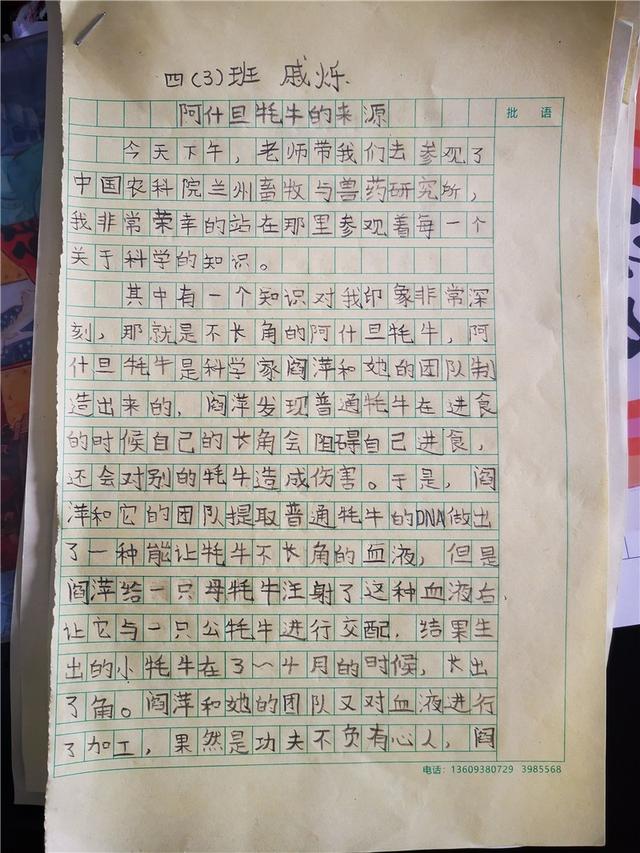 四(3)班 戚烁
阿什旦牦牛的来源
批 语
今天下午，老师带我们去参观了
中国农科院兰州畜牧与兽药研究所，
我非常荣幸的站在那里参观着每一个
关于科学的知识。
其中有一个知识对我印象非常深
刻，那就是不长角的阿什旦牦牛，阿
什旦牦牛是科学家阎萍和她的团队制
造出来的，阎萍发现普通牦牛在进食
的时候自己的长角会阻碍自己进食，
还会对别的牦牛造成伤害。于是，阎
萍和它的团队提取普通牦牛的DNA做出
了一种能让牦牛不长角的血液，但是
阎萍给一只母牦牛注射了这种血液后，
让它与一只公牦牛进行交配，结果生
出的小牦牛在3～4月的时候，长出
了角。阎萍和她的团队又对血液进行
了加工，果然是功夫不负有心人，阎
电话：13609380729 3985568